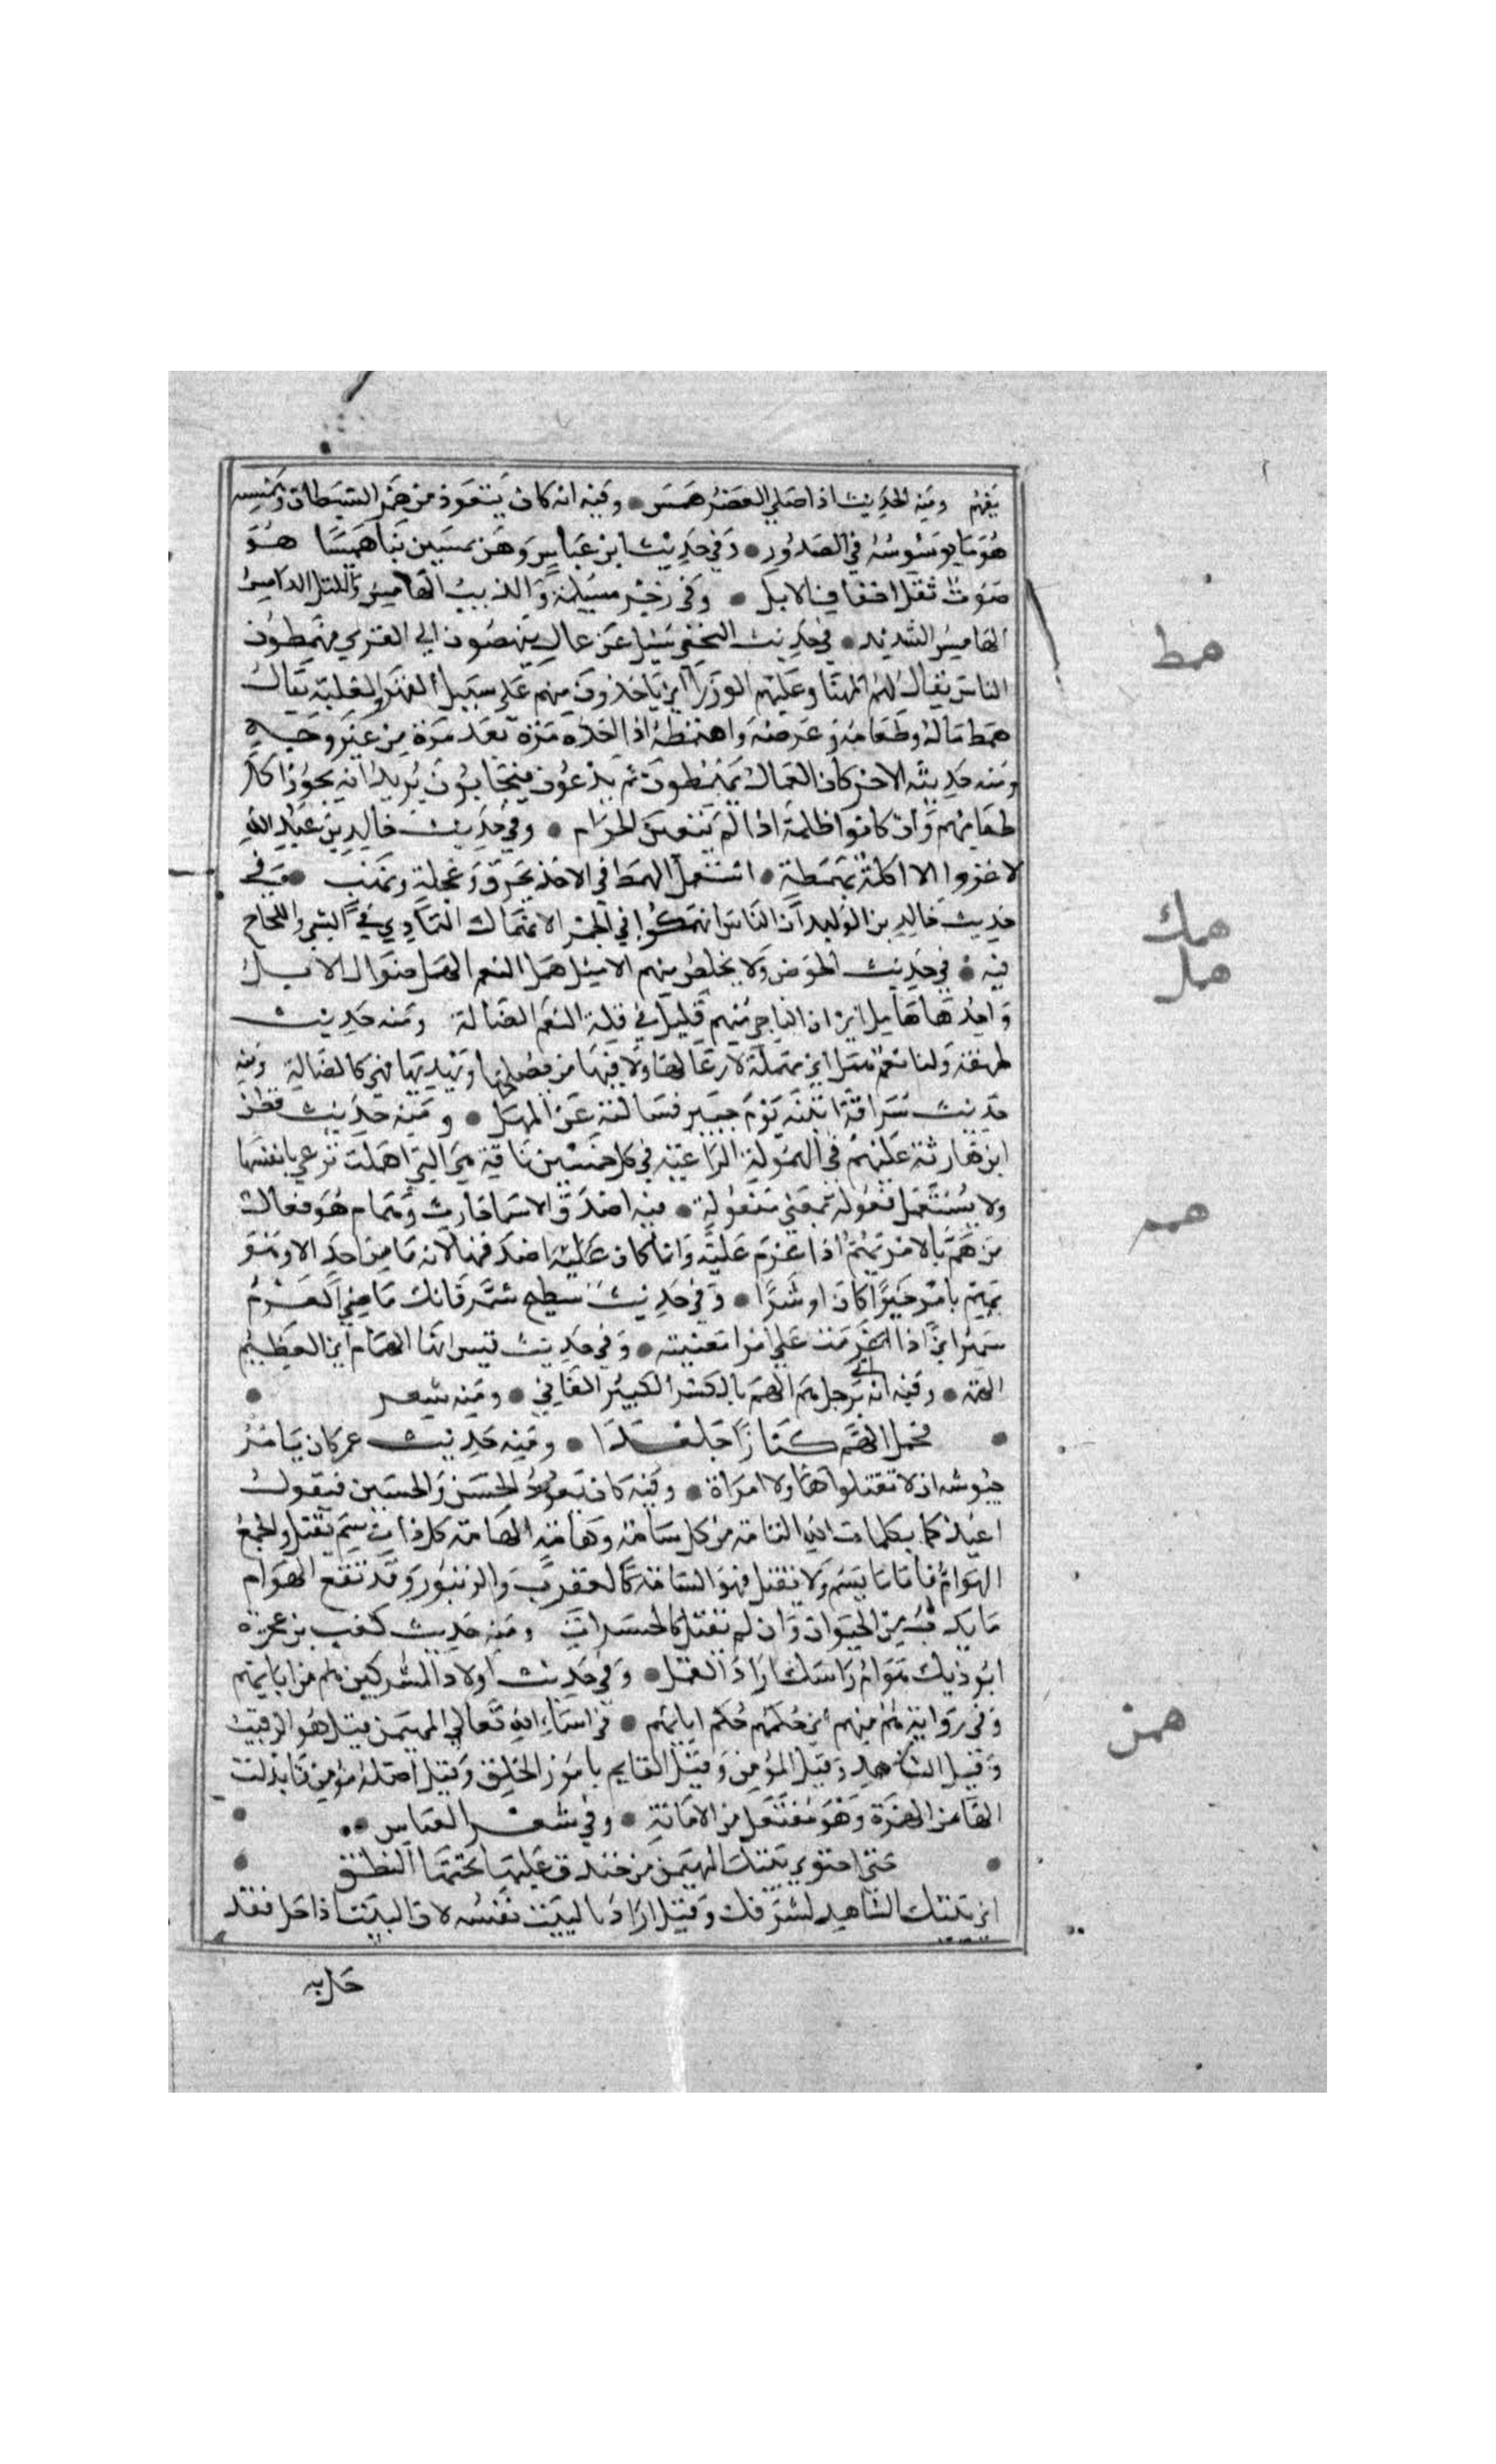 يفهم ومنه الحديث اذا صلي العصر همس • وفيه انه كان يتعوذ من همز الشيطان وهمسه
هو ما يوسوسه في الصدور • وفي حديث ابن عباس وهن يمشين بنا هميسا هو
صوت نقل اخفاف الابل • وفي رجز مسيلمة والذيب الهامس والليل الدامس
الهامس الشديد • في حديث النخعي سئل عن عمال ينهضون الي القري فيهمطون
الناس يقال لهم المهنا وعليهم الوزر اي ياخذون منهم علي سبيل القهر والغلبة يقال
همط ماله وطعامه وعرضه واهتمطه اذا اخذه مرة بعد مرة من غير وجه
ومنه حديثه الاخر كان العمال يهمطون ثم يدعون فيجابون يريد انه يجوز اكل
طعامهم وان كانوا ظلمة اذا لم يتعين الحرام • وفي حديث خالد بن عبد الله
لا غزوا الا اكلة بهمطة • استعمل الهمط في الاخذ بخرق وعجلة ونهب • وفي
حديث خالد بن الوليد ان الناس انهمكوا في الخمر الانهماك التمادي في الشي واللجاج
فيه • في حديث الحوض ولا يخلص منهم الا مثل همل النعم الهمل ضوال الابل
واحدها هامل اي ان الناجي منهم قليل في قلة النعم الضالة ومنه حديث
طهفة ولنا نعم همل اي مهملة لا رعا لها ولا فيها من يصلحها ويهديها فهي كالضالة ومنه
حديث سراقة اتيته يوم حنين فسالته عن الهمل • ومنه حديث قطن
ابن حارثة عليهم في الهمولة الراعية في كل خمسين ناقة هي التي اهملت ترعي بانفسها
ولا يستعمل فعولة بمعني مفعولة • فيه اصدق الاسما حارث وهمام هو فعال
من هم بالامر يهم اذا عزم عليه وانما كان اصدقها لانه ما من احد الا وهو
يهتم بامر خيرا كان او شرا • وفي حديث سطيح شمر فانك ماضي العزم
شمير اي اذا عزمت علي امر امضيته • وفي حديث قيس ايها الهمام اي العظيم
الهمة • وفيه انه اتي برجل هم الهم بالكسر الكبير الفاني • ومنه شعر
فحمل الهم كنازا جلعدا • ومنه حديث عمر كان يامر
جيوشه ان لا تقتلوا هما ولا امراة • وفيه كان يعوذ الحسن والحسين فيقول
اعيذكما بكلمات الله التامة من كل سامة وهامة الهامة كل ذات سم يقتل والجمع
الهوام فاما ما يسم ولا يقتل فهو السامة كالعقرب والزنبور وقد تقع الهوام
ما يدب من الحيوان وان لم تقتل كالحشرات ومنه حديث كعب بن عجرة
ايوذيك هوام راسك اراد القمل • وفي حديث اولاد المشركين هم من ابايهم
وفي رواية هم منهم اي حكمهم حكم ابايهم • في اسماء الله تعالي المهيمن قيل هو الرقيب
وقيل الشاهد وقيل المؤمن وقيل القايم بامور الخلق وقيل اصله مؤمن فابدلت
الها من الهمزة وهو مفتعل من الامانة • وفي شعر العباس ••
حتي احتوي بيتك المهيمن من خندف علياء تحتها النطق
اي بيتك الشاهد لشرفك وقيل اراد بالبيت نفسه لان البيت اذا حل فقد
حل به
همط
همك
همل
همم
همن